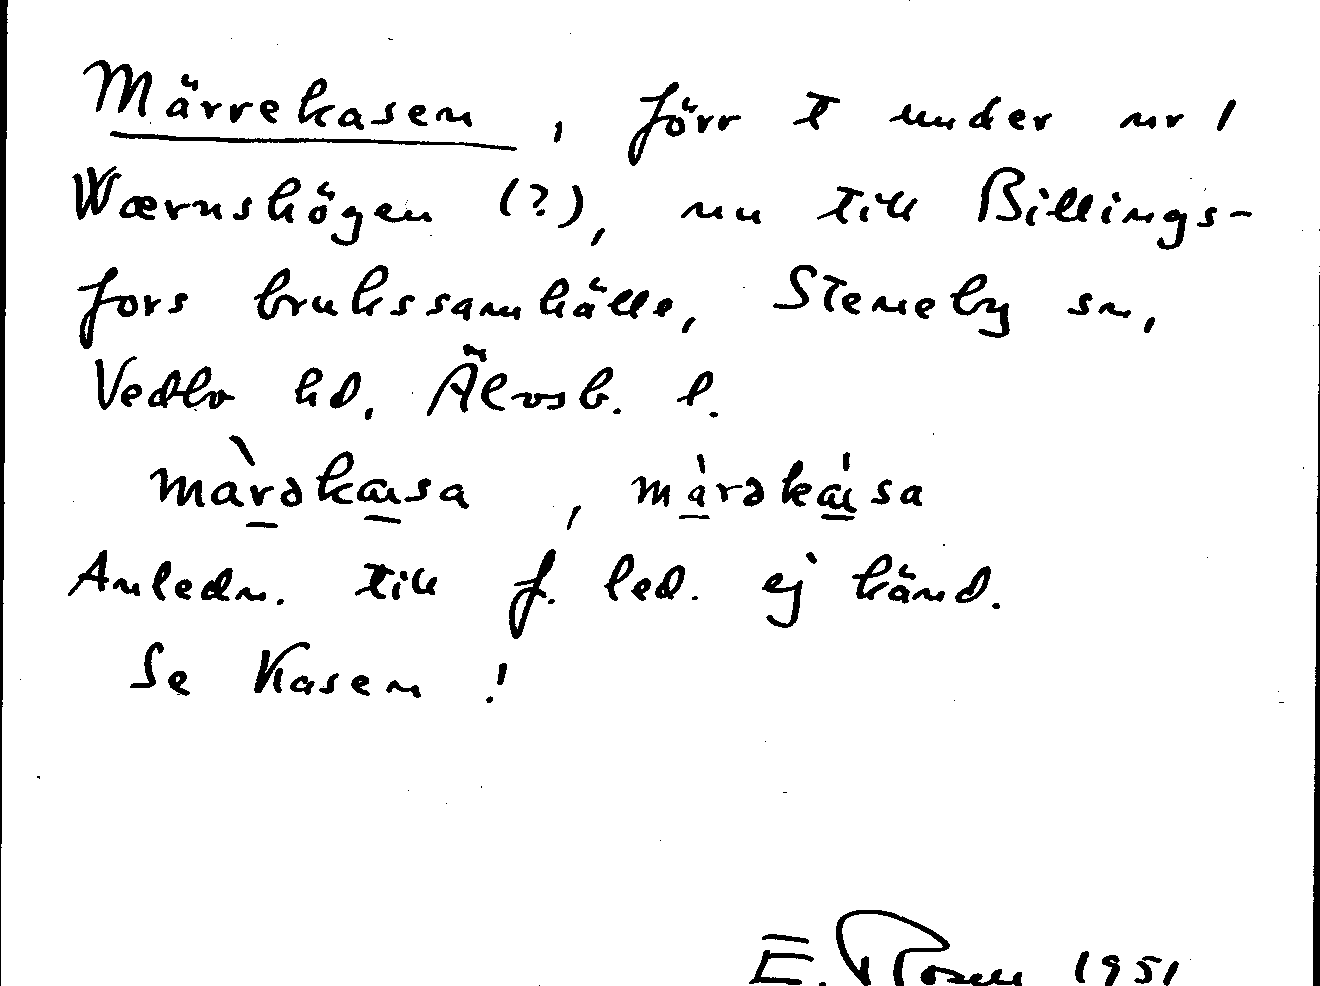 Märrekasen, förr t under nr 1
Wærnshögen (?), nu till Billings-
fors brukssamhälle, Steneby sn,
Vedbo hd. Älvsb. l.
màrəkaısa, màrəkáısa
Anledn. till f. led. ej känd.
Se Kasen!
E. Rosell 1951